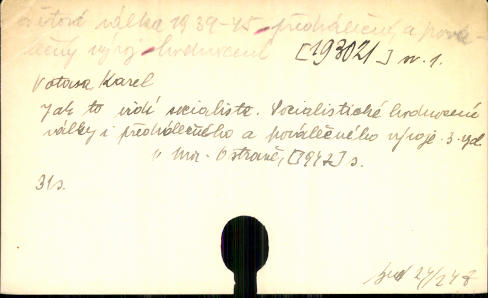 Světová válka 1939-45 - předválečný a pová-
lečný vývoj - hodnocení
[193021] n. 1.
Votasa Karel
Jak to vidí socialista. Socialistické hodnocení
války i předválečného a poválečného vývoje. 3. vyd.
v Mor. Ostravě, [1947] s.
31s.
24/248